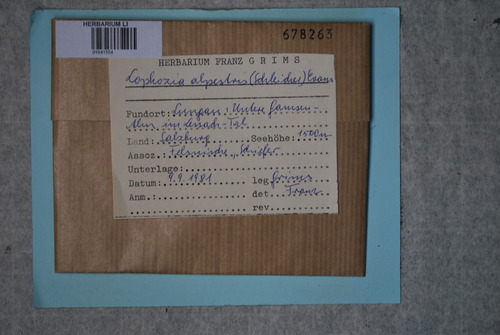 HERBARIUM LI
678263
HERBARIUM FRANZ GRIMS
Lophozia alpestris (Schleicher) Evans
Fundort: Lungau: Untere
Alm im Tal
Land: Salzburg Seehöhe: 1500m
Assoz.: Schiefer
Unterlage:
Datum: 9.9.1981 leg Grims
Anm.: det Franz
rev